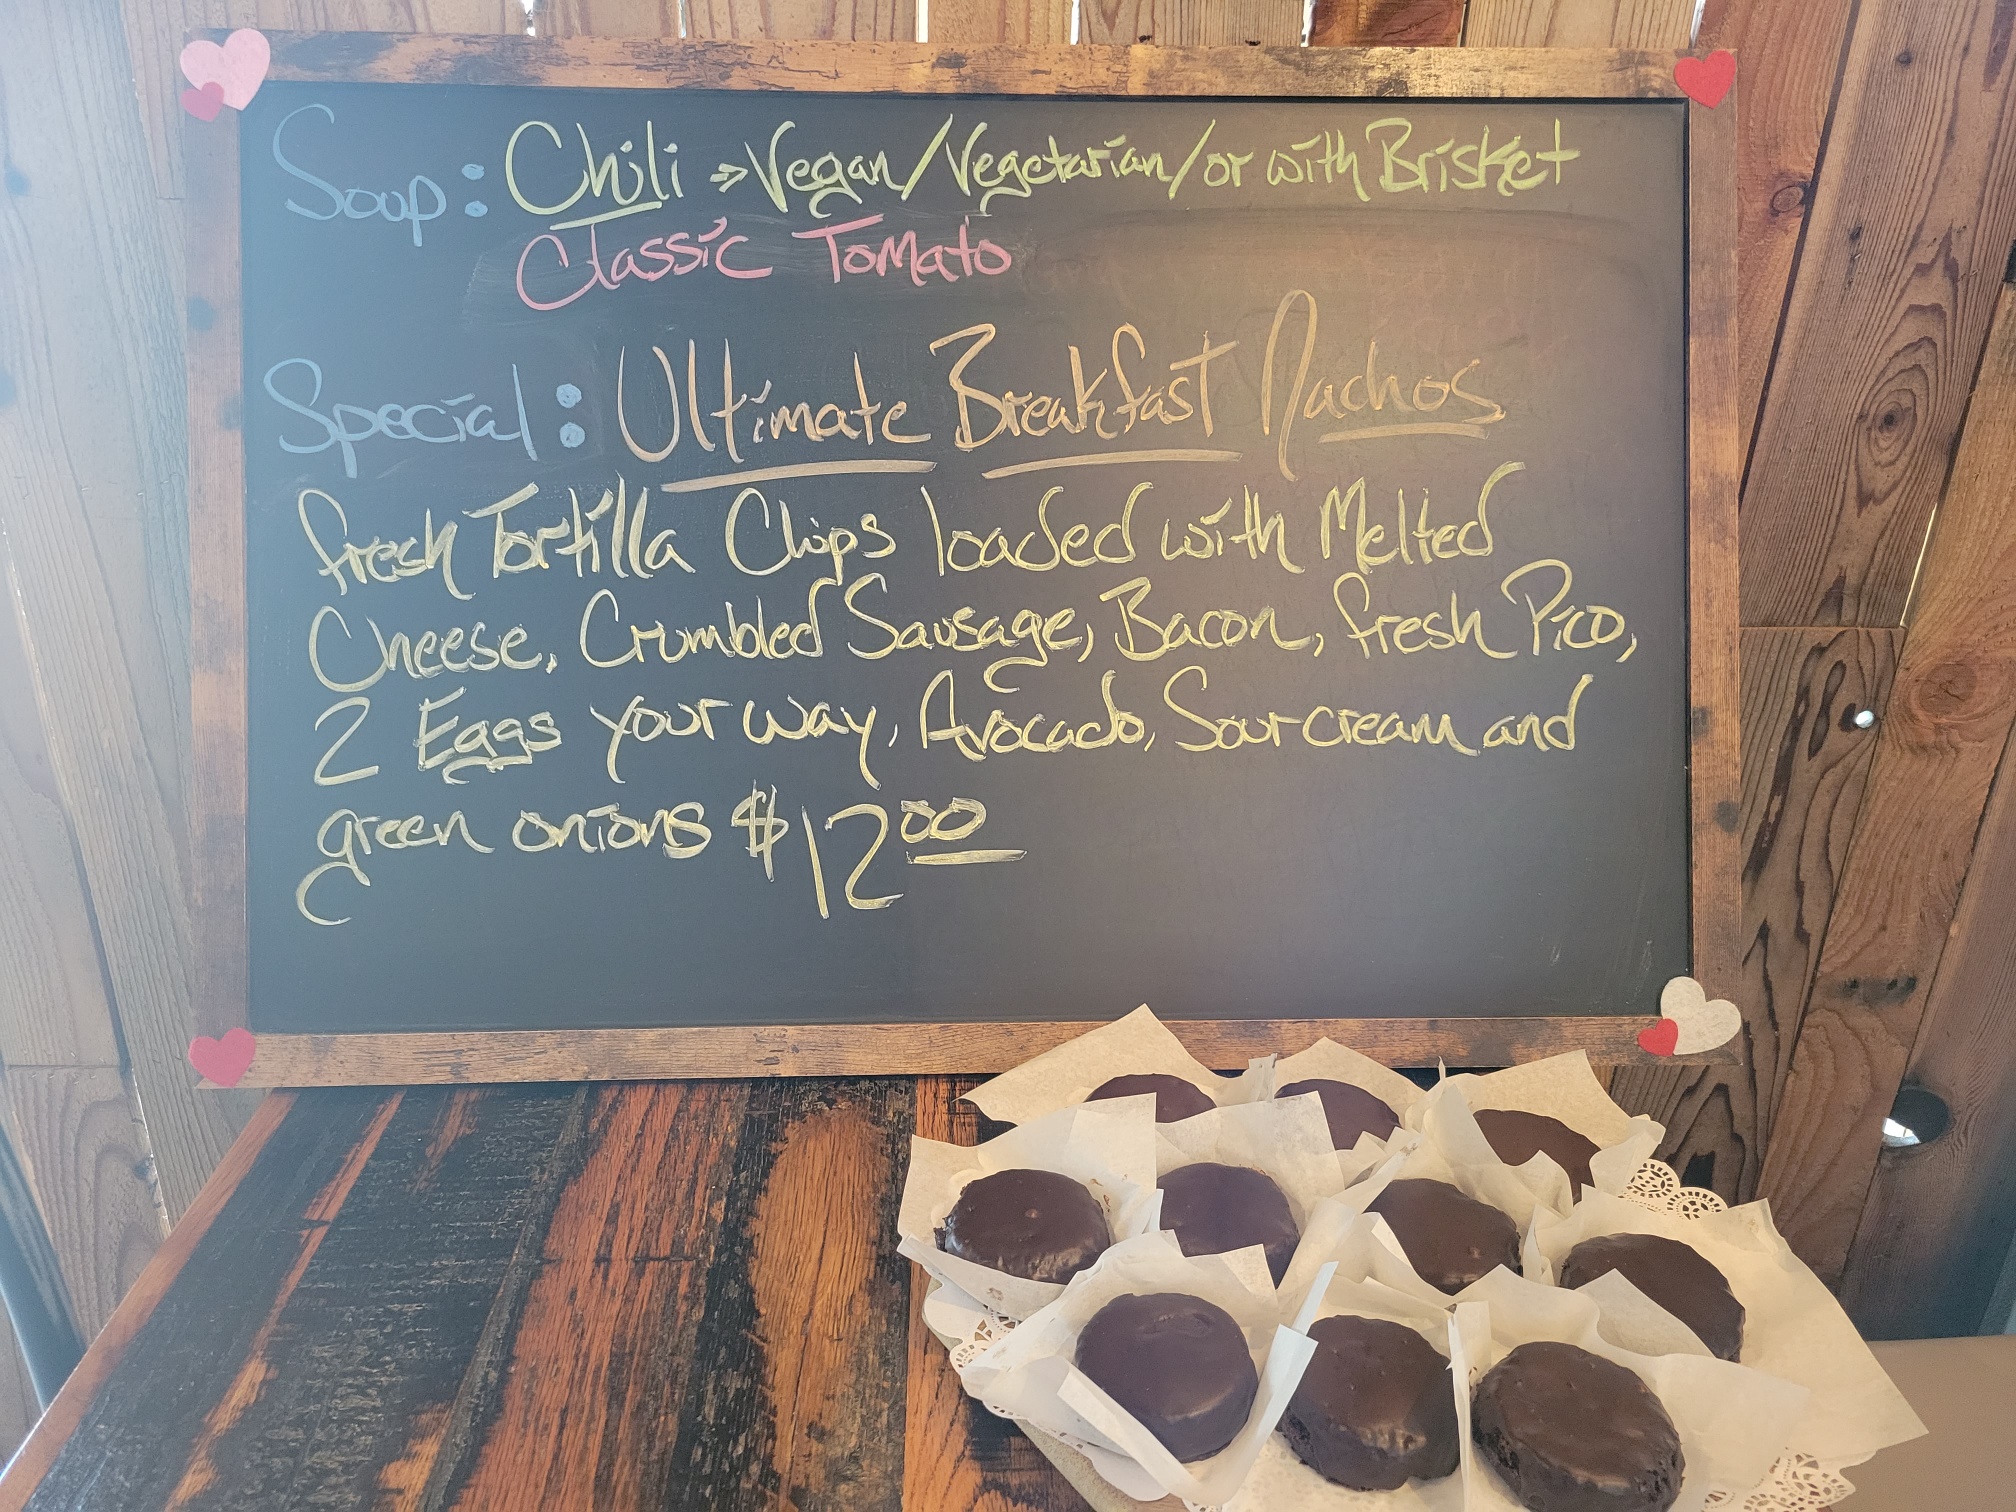 Soup: Chili → Vegan/Vegetarian/or with Brisket
Classic Tomato
Special: Ultimate Breakfast Nachos
fresh Tortilla Chips loaded with Melted
Cheese, Crumbled Sausage, Bacon, fresh Pico,
2 Eggs your way, Avocado, Sour cream and
green onions $12.00